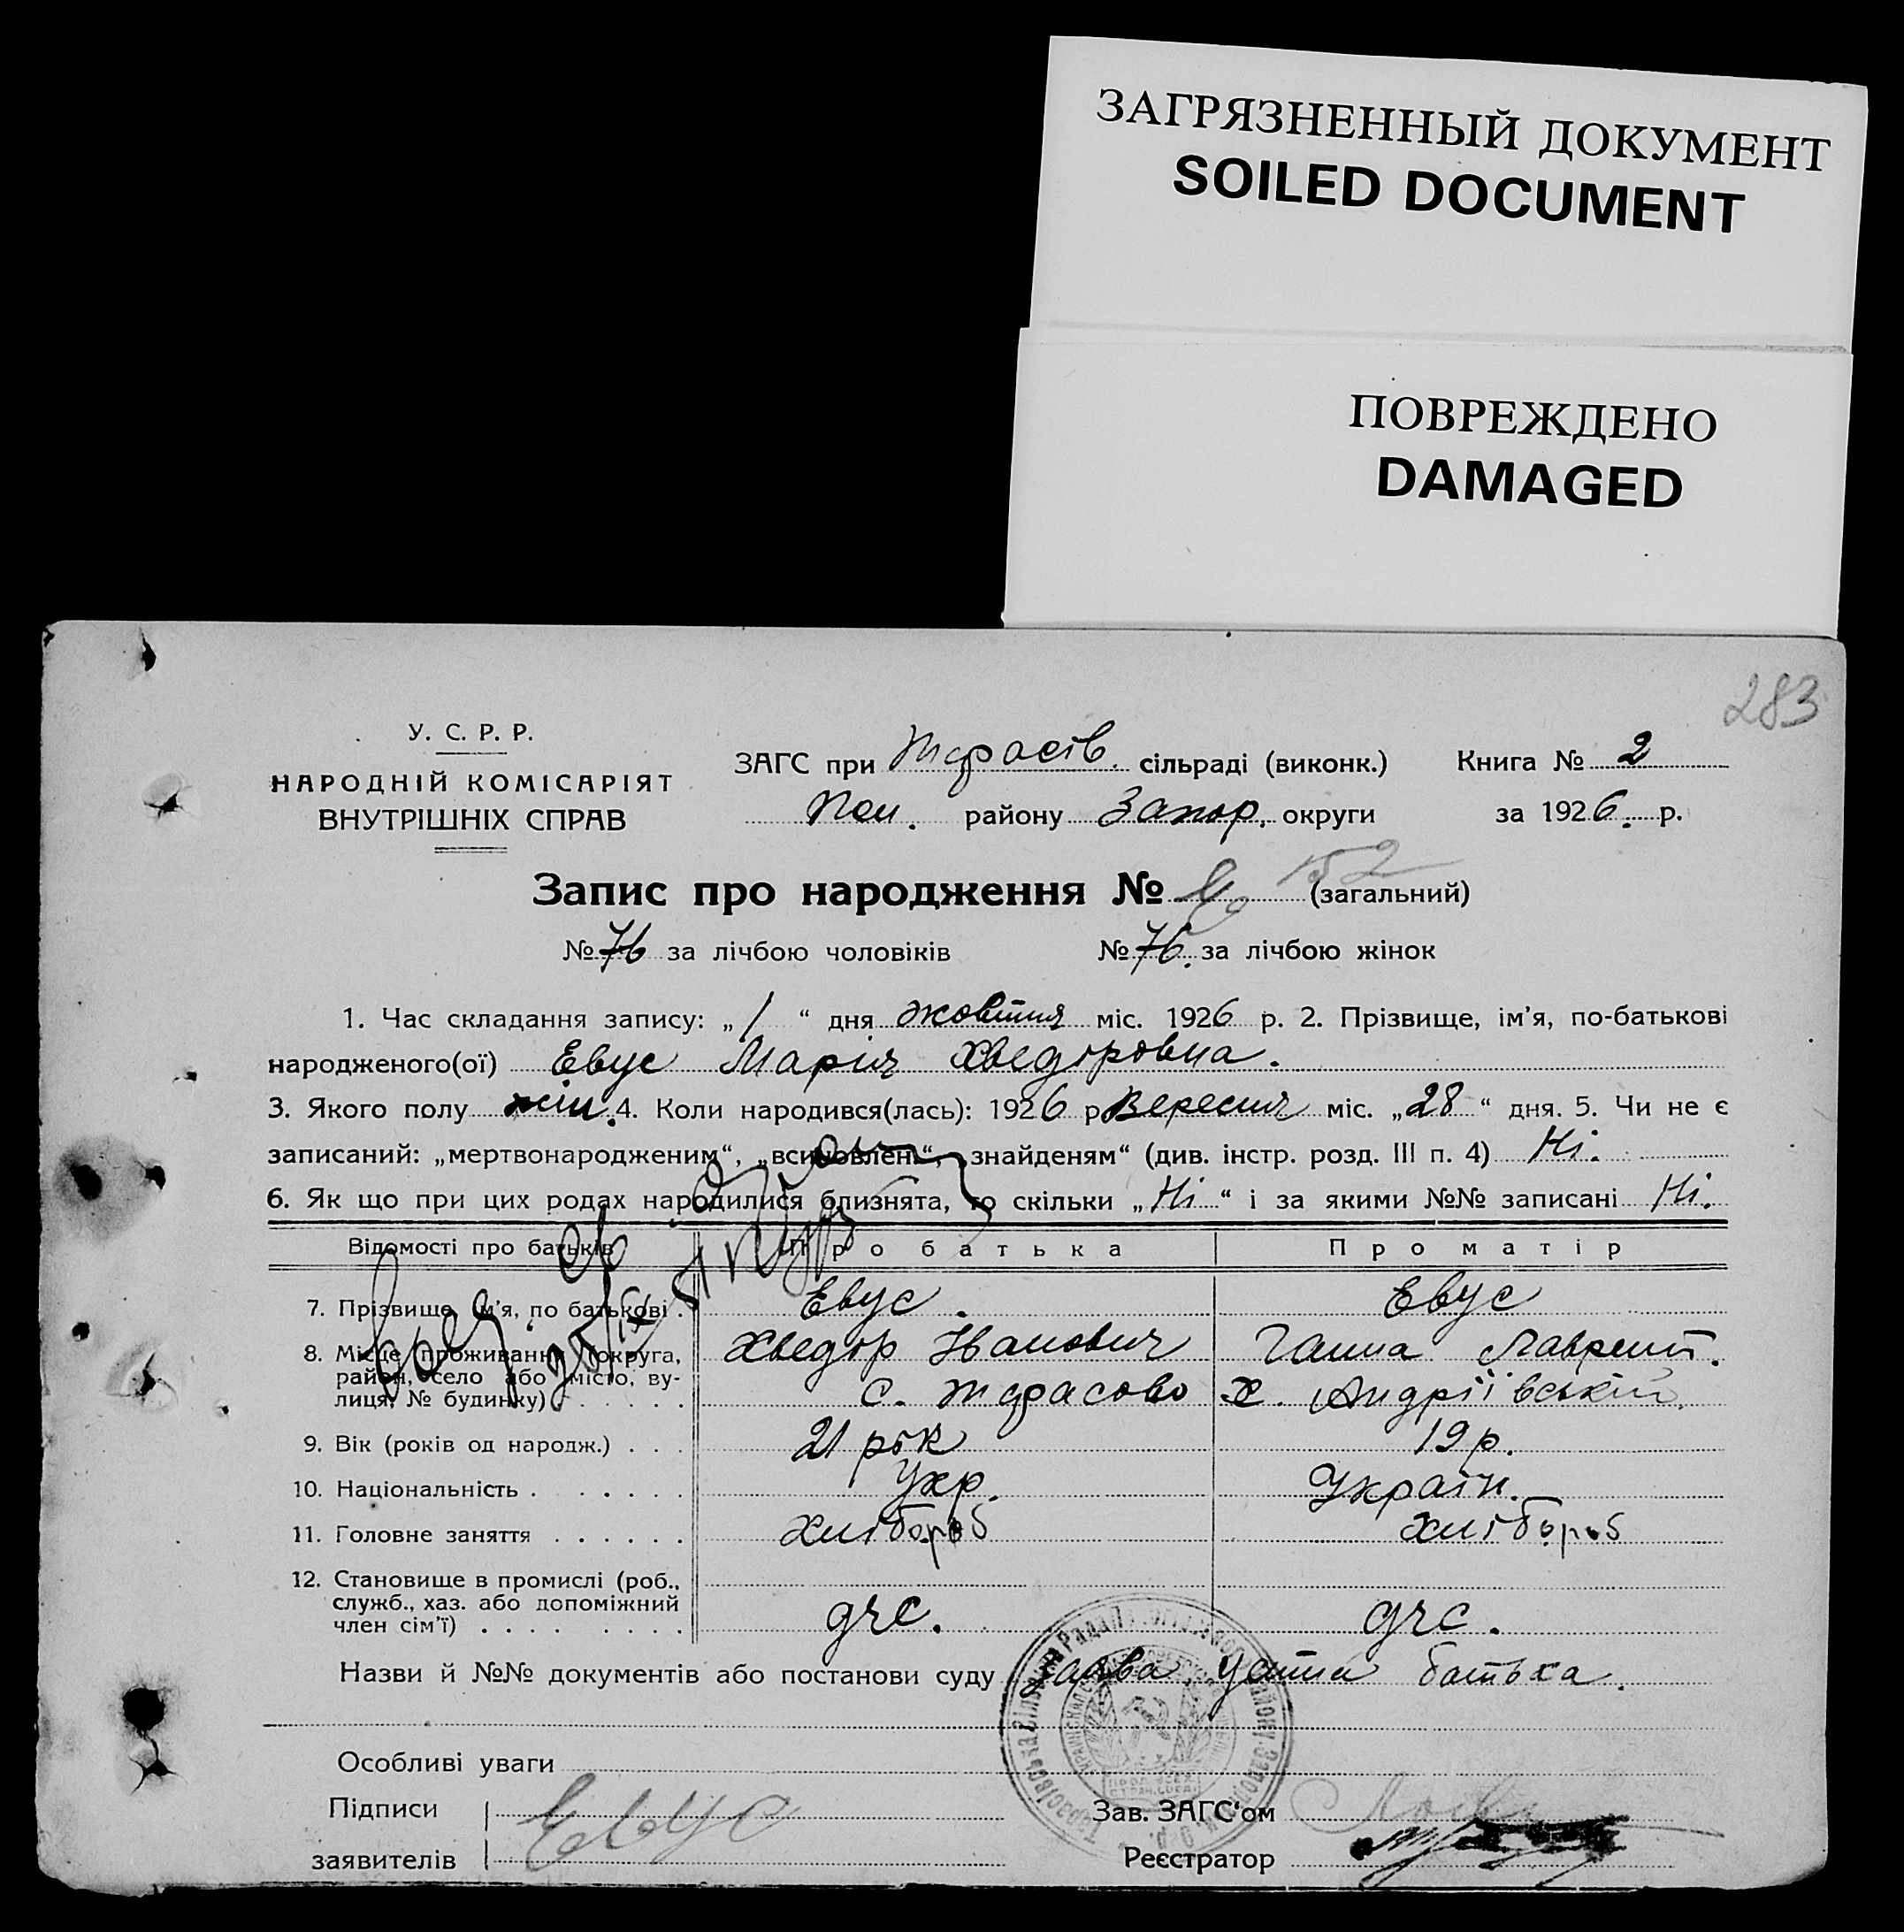 ЗАГРЯЗНЕННЫЙ ДОКУМЕНТ
SOILED DOCUMENT
ПОВРЕЖДЕНО
DAMAGED
283
У. С. Р. Р.
НАРОДНІЙ КОМІСАРІЯТ
ВНУТРІШНІХ СПРАВ
ЗАГС при Тарасів. сільраді (виконк.)
району Запор. округи
Книга № 2
за 1926. р.
Запис про народження № 152 (загальний)
№ 76 за лічбою чоловіків № 76. за лічбою жінок
1. Час складання запису: „1“ дня жовтня міс. 1926 р. 2. Прізвище, ім'я, по-батькові
народженого(ої) Евус Марія Хведоровна.
3. Якого полу жін. 4. Коли народився(лась): 1926 р. Вересня міс. „28“ дня. 5. Чи не є
записаний: „мертвонародженим“, „всиновлен“, „знайденям“ (див. інстр. розд. III п. 4) Ні.
6. Як що при цих родах народилися близнята, то скільки „Ні“ і за якими №№ записані Ні.
Відомості про батьків Про батька Про матір
7. Прізвище, ім'я, по батькові . Евус. Евус
Хведор Иванович Ганна Лаврент.
8. Місце проживання (округа,
район, село або місто, ву-
лиця, № будинку) . . . . . . с. Тарасово х. Андріївський
9. Вік (років од народж.) . . . 21 рок 19 р.
10. Національність . . . . . . Укр. Україн.
11. Головне заняття . . . . . . Хлібороб хлібороб
12. Становище в промислі (роб.,
служб., хаз. або допоміжний
член сім'ї) . . . . . . . . дчс. дчс.
Назви й №№ документів або постанови суду заява устна батька.
Особливі уваги
Підписи
заявителів
Евус
Зав. ЗАГС'ом
Реєстратор